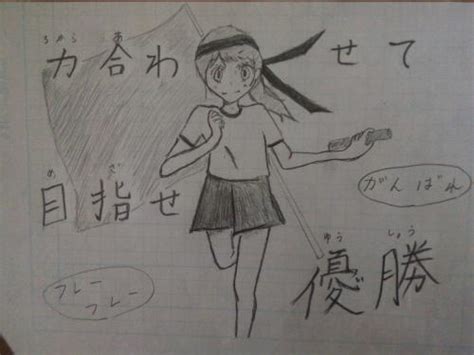 ちから あ
力合わせて
め ざ
目指せ
がんばれ
ゆうしょう
優勝
フレー
フレー